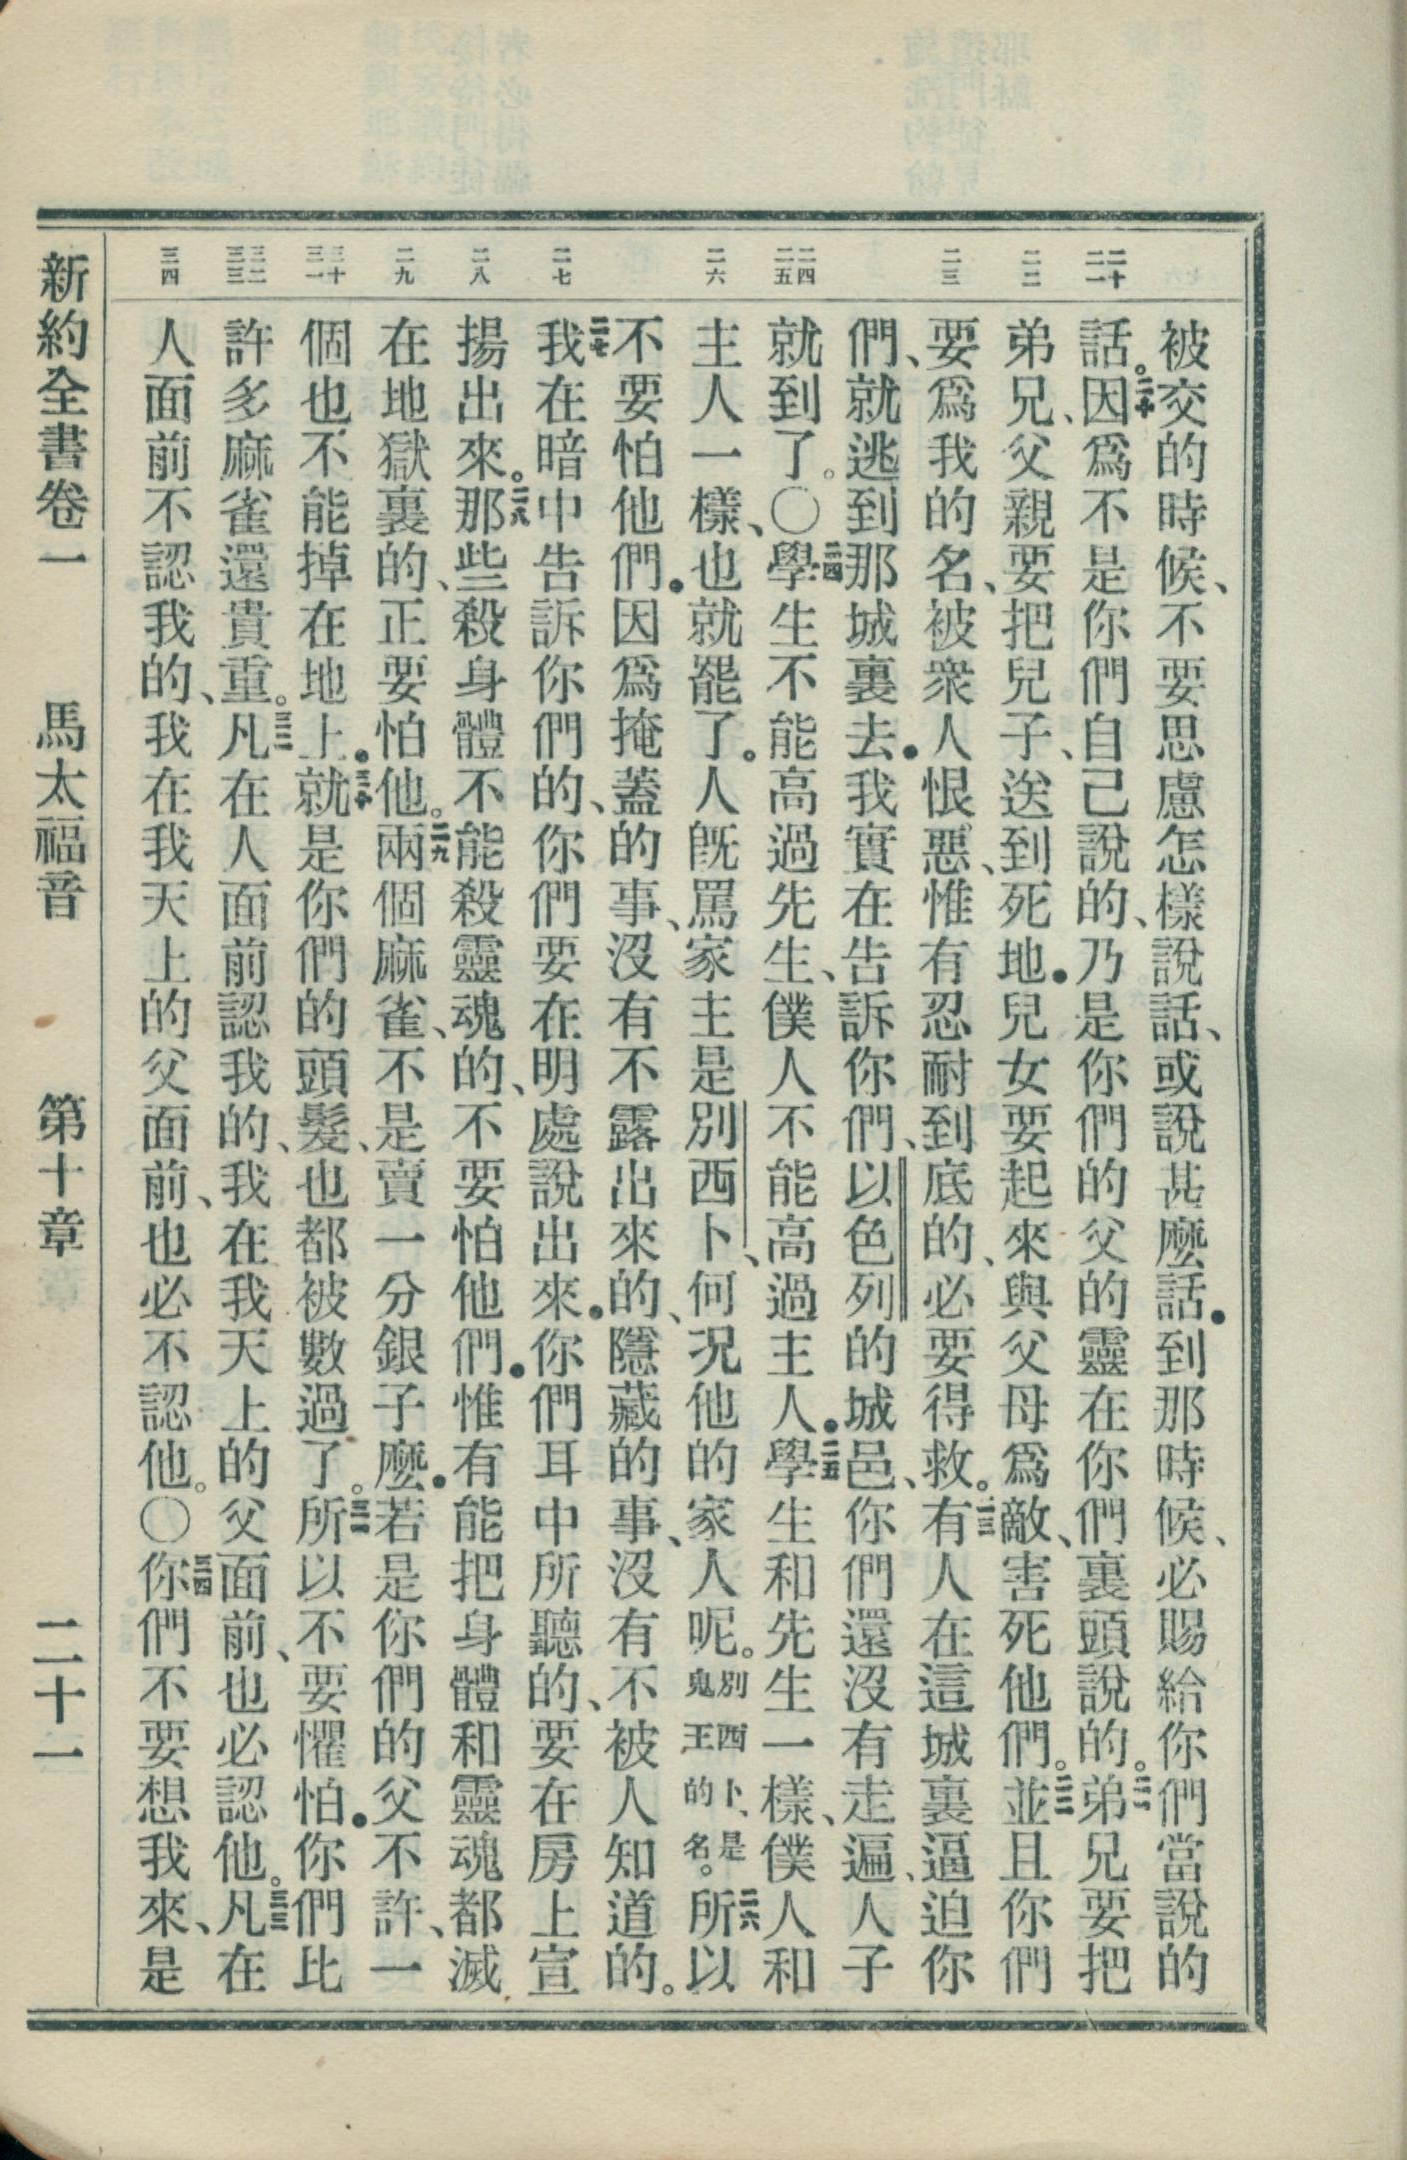 被交的時候、不要思慮怎樣說話、或說甚麽話．到那時候、必賜給你們當說的
話。二十因爲不是你們自己說的、乃是你們的父的靈在你們裏頭說的。二一弟兄要把
弟兄、父親要把兒子、送到死地．兒女要起來與父母爲敵、害死他們。二二並且你們
要爲我的名、被衆人恨惡、惟有忍耐到底的、必要得救。二三有人在這城裏逼迫你
們、就逃到那城裏去．我實在告訴你們、以色列的城邑、你們還沒有走遍、人子
就到了。〇二四學生不能高過先生、僕人不能高過主人．二五學生和先生一樣、僕人和
主人一樣、也就罷了。人旣罵家主是別西卜、何况他的家人呢。別西卜、是鬼王的名。二六所以
不要怕他們．因爲掩蓋的事、沒有不露出來的、隱藏的事、沒有不被人知道的。
二七我在暗中告訴你們的、你們要在明處說出來．你們耳中所聽的、要在房上宣
揚出來。二八那些殺身體不能殺靈魂的、不要怕他們．惟有能把身體和靈魂都滅
在地獄裏的、正要怕他。二九兩個麻雀、不是賣一分銀子麽．若是你們的父不許、一
個也不能掉在地上．三十就是你們的頭髮、也都被數過了。三一所以不要懼怕．你們比
許多麻雀還貴重。三二凡在人面前認我的、我在我天上的父面前、也必認他。三三凡在
人面前不認我的、我在我天上的父面前、也必不認他。〇三四你們不要想我來、是
二十
二一
二二
二三
二四
二五
二六
二七
二八
二九
三十
三一
三二
三三
三四
新約全書卷一　馬太福音　第十章　二十一